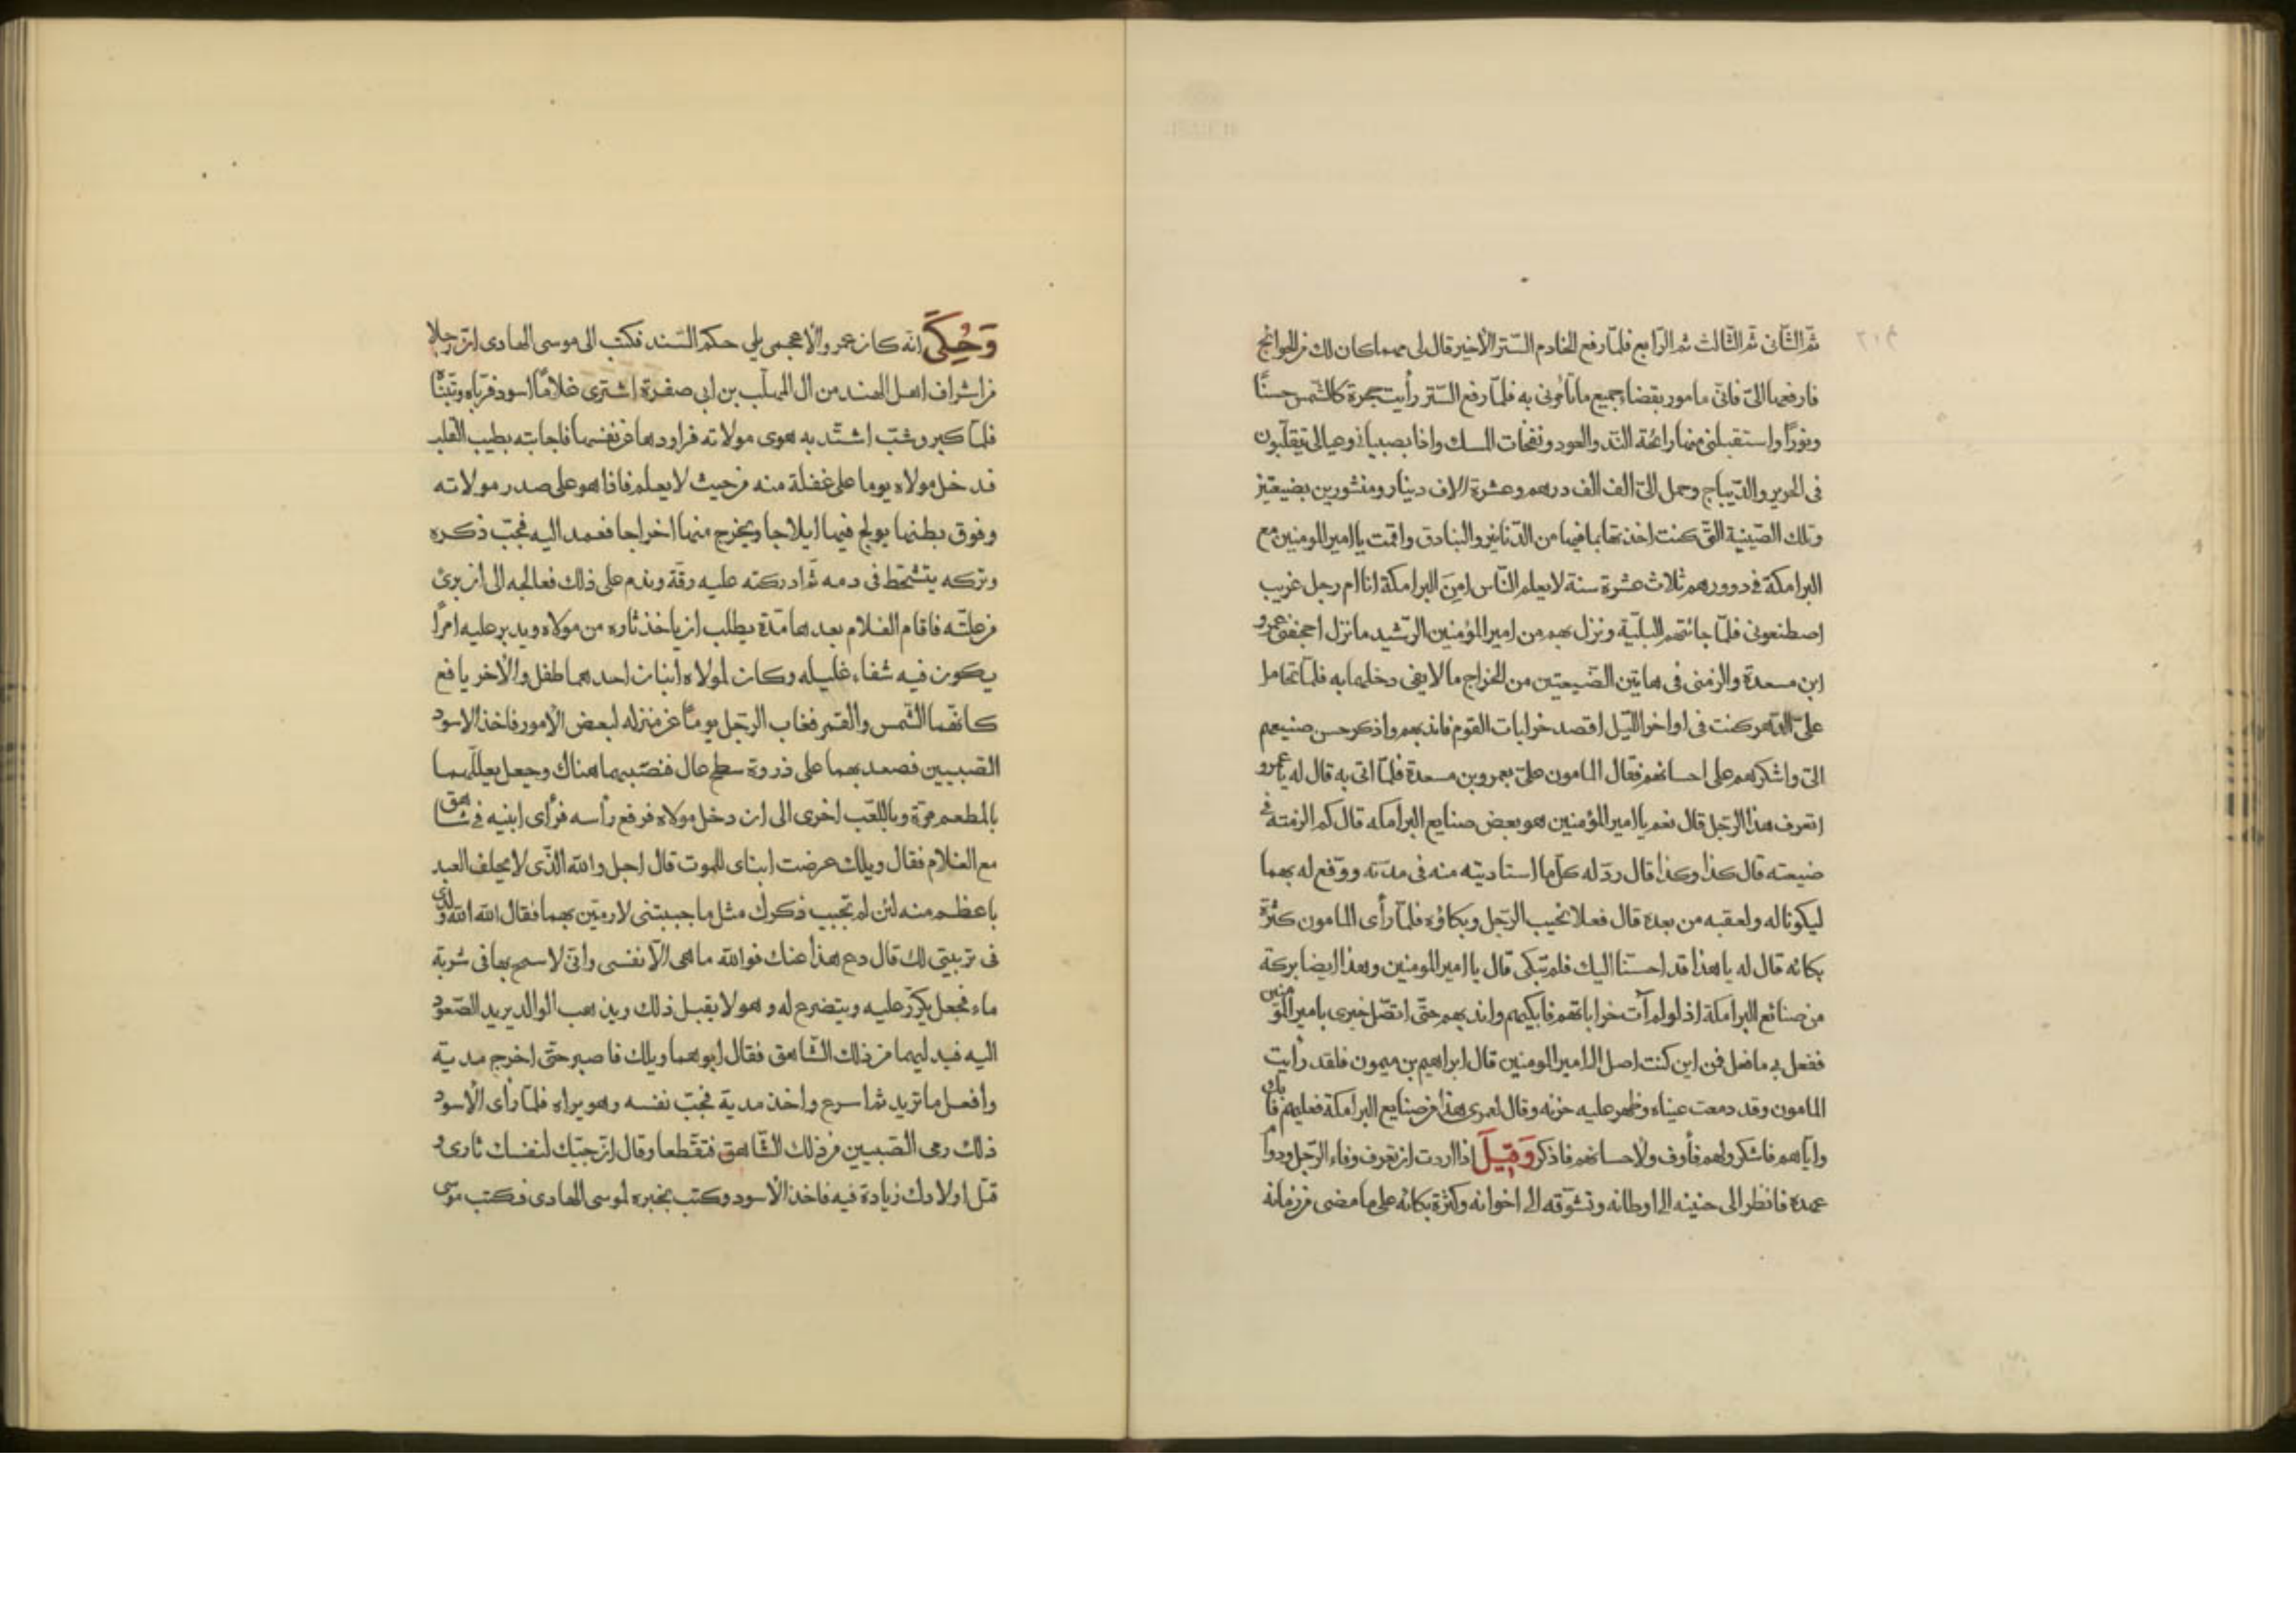 ٢١٢
ثم الثّانى ثم الثّالث ثم الرّابع فلمّا رفع الخادم السّتر الأخير قال لى مهما كان لك من الحوائج
فارفعها الىّ فانّى مامور بقضاء جميع ما تأمرنى به فلمّا رفع السّتر رأيت حجرة كالشّمس حسنًا
ونورًا واستقبلنى منها رائحة النّد والعود ونفخات المسك واذا بصبيانى وعيالى يتقلّبون
فى الحرير والدّيباج وحمل الىّ الف الف درهم وعشرة الاف دينار ومنشورين بضيعتين
وتلك الصّينية الّتى كنت اخذتها بما فيها من الدّنانير والبنادق واقمت يا امير المومنين مع
البرامكة فى دوورهم ثلاث عشرة سنة لا يعلم النّاس امن البرامكة انا ام رجل غريب
اصطنعونى فلمّا جائتهم البليّة ونزل بهم من امير المؤمنين الرّشيد ما نزل اجحفنى عمرو
ابن مسعدة والزمنى فى هاتين الضّيعتين من الخراج ما لا يفى دخلهما به فلمّا تحامل
علىّ الدّهر كنت فى اواخر اللّيل اقصد خرابات القوم فاندبهم واذكر حسن صنيعهم
الىّ واشكرهم على احسانهم فقال المامون علىّ بعمرو بن مسعدة فلمّا اتى به قال له يا عمرو
اتعرف هذا الرّجل قال نعم يا امير المؤمنين هو بعض صنايع البرامكه قال كم الزمته فى
ضيعته قال كذا وكذا قال ردّ له كلّ ما استاديته منه فى مدّته ووقّع له بهما
ليكونا له ولعقبه من بعده قال فعلا نحيب الرّجل وبكاؤه فلمّا رأى المامون كثرة
بكائه قال له يا هذا قد احسنّا اليك فلم تبكى قال يا امير المومنين وهذا ايضا بركة
من صنائع البرامكة اذ لو لم آت خراباتهم فابكيهم واندبهم حتّى اتصّل خبرى بامير المؤمنين
ففعل بى ما فعل فمن اين كنت اصل الى امير المومنين قال ابراهيم بن ميمون فلقد رأيت
المامون وقد دمعت عيناه وظهر عليه حزنه وقال لعمرى هذا من صنايع البرامكة فعليهم فابك
وايّاهم فاشكر ولهم فأوف ولاحسانهم فاذكر وَقِيلَ اذا اردت ان تعرف وفاء الرّجل ودوام
عهده فانظر الى حنينه الى اوطانه وتشوّقه الى اخوانه وكثرة بكائه على ما مضى من زمانه
وَحُكِىَ انّه كان عمرو الاعجمى يلى حكم السّند فكتب الى موسى الهادى ان رجلا
من اشراف اهل الهند من ال المهلّب بن ابى صفرة اشترى غلامًا اسود فربّاه وتبنّاه
فلمّا كبر وشبّ اشتّد به هوى مولاته فراودها عن نفسها فاجابته بطيب القلب
فدخل مولاه يوما على غفلة منه من حيث لا يعلم فاذا هو على صدر مولاته
وفوق بطنها يولج فيها ايلاجا ويخرج منها اخراجا فعمد اليه فجبّ ذكره
وتركه يتشحّط فى دمه ثمّ ادركته عليه رقّة وندم على ذلك فعالجه الى ان برئ
من علّته فاقام الغلام بعدها مدّة يطلب ان ياخذ ثاره من مولاه ويدبر عليه امرًا
يكون فيه شفاء غليله وكان لمولاه ابنان احدهما طفل والآخر يافع
كانّهما الشّمس والقمر فغاب الرّجل يومًا عن منزله لبعض الأمور فاخذ الاسود
الصّبيين فصعد بهما على ذروة سطح عال فنصّبهما هناك وجعل يعلّلهما
بالمطعم مرّة وباللّعب اخرى الى ان دخل مولاه فرفع رأسه فرأى ابنيه فى شاهق
مع الغلام فقال ويلك عرضت ابناى للموت قال اجل والله الّذى لا يحلف العبد
باعظم منه لئن لم تجبب ذكرك مثل ما جببتنى لارمّين بهما فقال الله الله يا ولدى
فى تربيتى لك قال دع هذا عنك فوالله ما هى الّا نفسى وانّى لاسمح بها فى شربة
ماء فجعل يكرّر عليه ويتضرع له وهو لا يقبل ذلك ويذهب الوالد يريد الصّعود
اليه فيدليهما من ذلك الشّاهق فقال ابوهما ويلك فاصبر حتّى اخرج مدية
وافعل ما تريد ثم اسرع واخذ مدية فجبّ نفسه وهو يراه فلمّا رأى الأسود
ذلك رمى الصّبيين من ذلك الشّاهق فتقّطعا وقال ان جبّك لنفسك ثارى و
قتل اولادك زيادة فيه فاخذ الأسود وكتب بخبره لموسى الهادى فكتب موسى